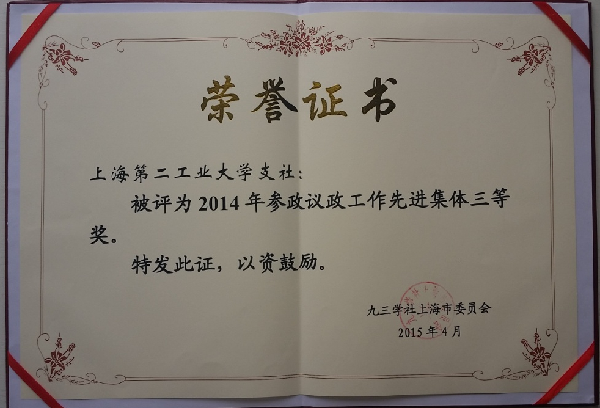 荣誉证书
上海第二工业大学支社：
被评为2014年参政议政工作先进集体三等
奖。
特发此证，以资鼓励。
九三学社上海市委员会
2015年4月